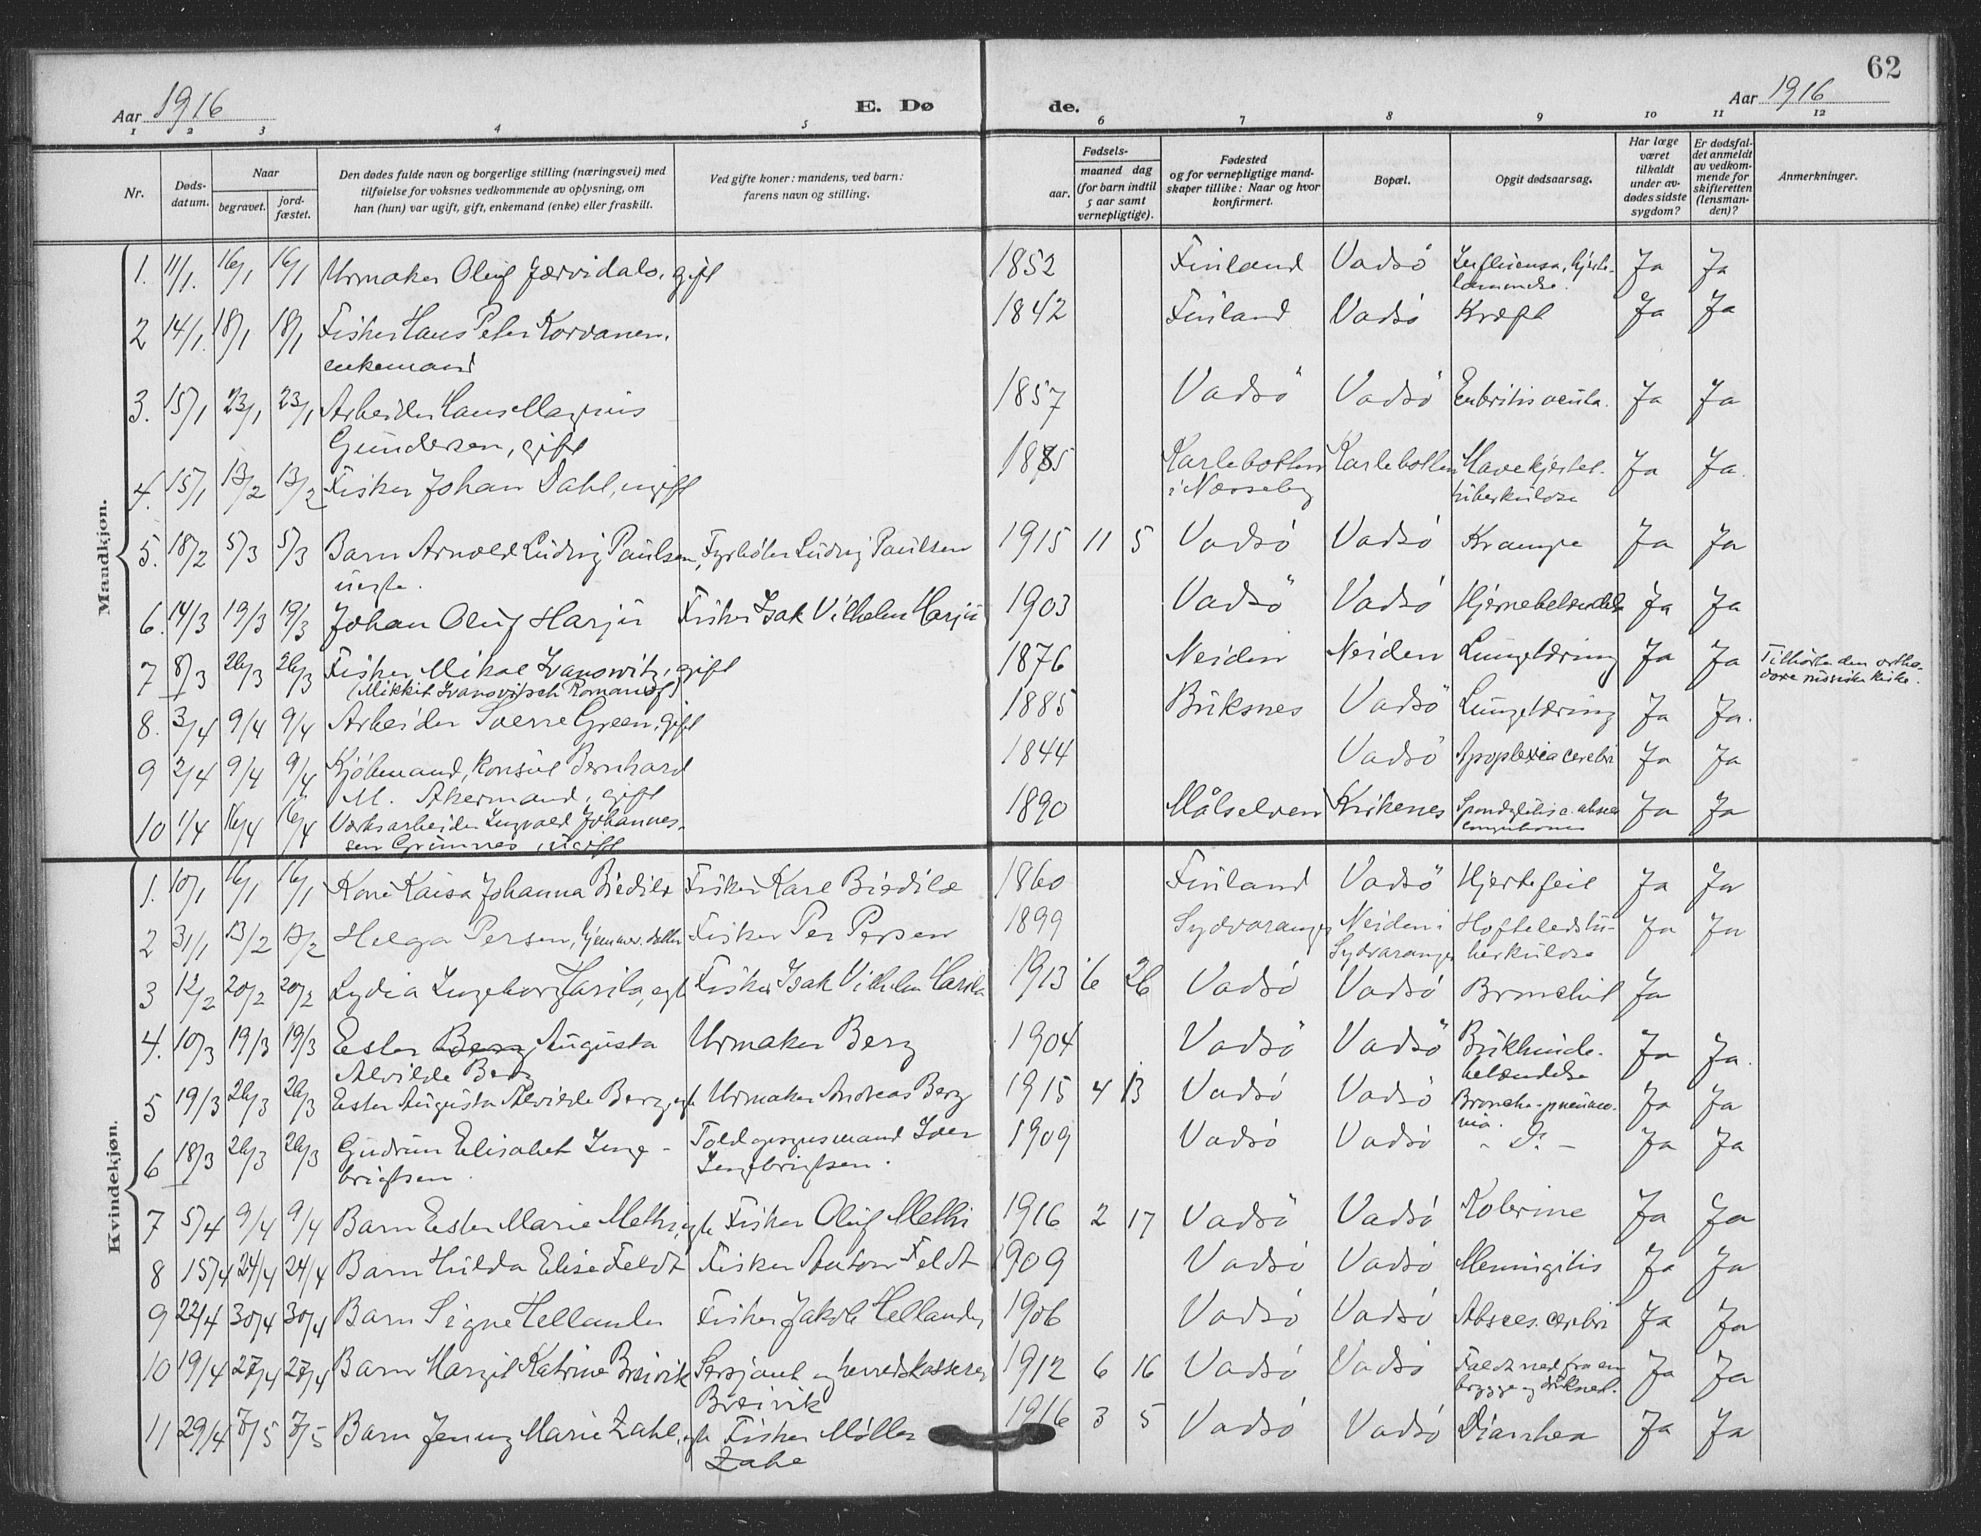 62
Aar 1916 E. Dø de. Aar 1916
1 2 3 4 5 6 7 8 9 10 11 12
Nr.
Døds-
datum.
Naar
begravet.
jord-
fæstet.
Den dødes fulde navn og borgerlige stilling (næringsvei) med
tilføielse for voksnes vedkommende av oplysning, om
han (hun) var ugift, gift, enkemand (enke) eller fraskilt.
Ved gifte koner: mandens, ved barn:
farens navn og stilling.
Fødsels-
aar.
maaned dag
(for barn indtil
5 aar samt
vernepligtige).
Fødested
og for vernepligtige mand-
skaper tillike: Naar og hvor
konfirmert.
Bopæl.
Opgit dødsaarsag.
Har læge
været
tilkaldt
under av-
dødes sidste
sygdom?
Er dødsfal-
det anmeldt
av vedkom-
mende for
skifteretten
(lensman-
den)?
Anmerkninger.
Mandkjøn.
1. 11/1. 16/1 16/1 Urmaker Oluf Jærvidalo, gift 1852 Finland Vadsö Influensa, hjerte- Ja Ja
lammelse.
2 14/1. 18/1 18/1 Fisker Hans Peter Korvanen, 1842 Finland Vadsö Kræft Ja Ja
enkemand
3. 15/1 23/1 23/1 Arbeider Hans Magnus 1857 Vadsö Vadsö Ja Ja
Gundersen, gift
4. 15/1 13/2 13/2 Fisker Johan Dahl, ugift 1885 Karlebotten Karlebotten Mavekjertel- Ja Ja.
i Næsseby tuberkulose
5. 18/2 5/3 5/3 Barn Arnold Ludvig Paulsen, Fyrbøter Ludvig Paulsen 1915 11 5 Vadsö Vadsö Krampe Ja Ja
uegte.
6. 14/3 19/3 19/3 Johan Oluf Harju Fisker Isak Vilhelm Harju 1903 Vadsö Vadsö Hjernebetændelse Ja Ja
7 8/3 26/3 26/3 Fisker Mikal Ivanowitz, gift 1876 Neiden Neiden Lungetæring Ja Ja Tilhørte den ortho-
(Mikkit Ivanovitsch Romanoff) doxe russiske kirke.
8. 3/4 9/4 9/4 Arbeider Sverre Green, gift 1885 Buksnes Vadsö Lungetæring Ja Ja.
9 2/4 9/4 9/4 Kjöbmand, konsul Bernhard 1844 Vadsö Apoplexia cerebri Ja Ja
M. Akermand, gift
10 1/4 16/4 16/4 Verksarbeider Ingvald Johannes- 1890 Målselven Kirkenes Ja Ja
sen Grunnes, ugift
Kvindekjøn.
1. 10/1 16/1 16/1 Kone Kaisa Johanna Biedilæ Fisker Karl Biedilæ 1860 Finland Vadsö Hjertefeil Ja Ja
2 31/1 13/2 13/2 Helga Persen, hjemmev. datter Fisker Per Persen 1899 Sydvaranger Neiden i Hofteledstu- Ja Ja
Sydvaranger berkulose
3 12/2 20/2 20/2 Lydia Ingeborg Harila, egt Fisker Isak Vilhelm Harila 1913 6 26 Vadsö Vadsö Bronchit Ja
4. 10/3 19/3 19/3 Ester Berg Augusta Urmaker Berg 1904 Vadsö Vadsö Bukhinde- Ja Ja.
Alvilde Berg betændelse
5 19/3 26/3 26/3 Ester Augusta Alvilde Berg, egt Urmaker Andreas Berg 1915 4 13 Vadsö Vadsö Broncho-pneumo- Ja Ja
nia.
6 18/3 26/3 26/3 Gudrun Elisabet Inge- Toldopsynsmand Iver 1909 Vadsö Vadsö - D: - Ja Ja
brigtsen Ingebrigtsen.
7 5/4 9/4 9/4 Barn Ester Marie Methi, egt Fisker Oluf Methi 1916 2 17 Vadsö Vadsö Kolerine Ja Ja
8 15/4 24/4 24/4 Barn Hilda Elise Feldt Fisker Anton Feldt 1909 Vadsö Vadsö Meningitis Ja Ja
9 22/4 30/4 30/4 Barn Signe Hellander Fisker Jakob Hellander 1906 Vadsö Vadsö Absces. cerebri Ja Ja
10 19/4 27/4 27/4 Barn Margit Katrine Breivik Sersjant og herredskasserer 1912 6 16 Vadsö Vadsö Faldt ned fra en Ja Ja
Breivik brygge og druknet.
11 29/4 7/5 7/5 Barn Jenny Marie Zahl, egt Fisker Møller 1916 3 5 Vadsö Vadsö Diarrhea Ja Ja
Zahl